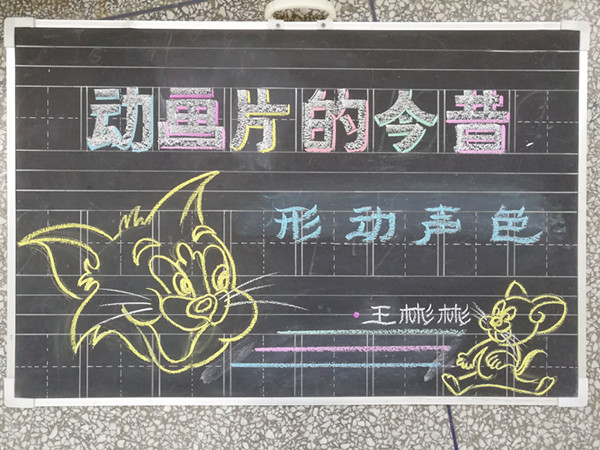 动画片的今昔
形动声色
王彬彬